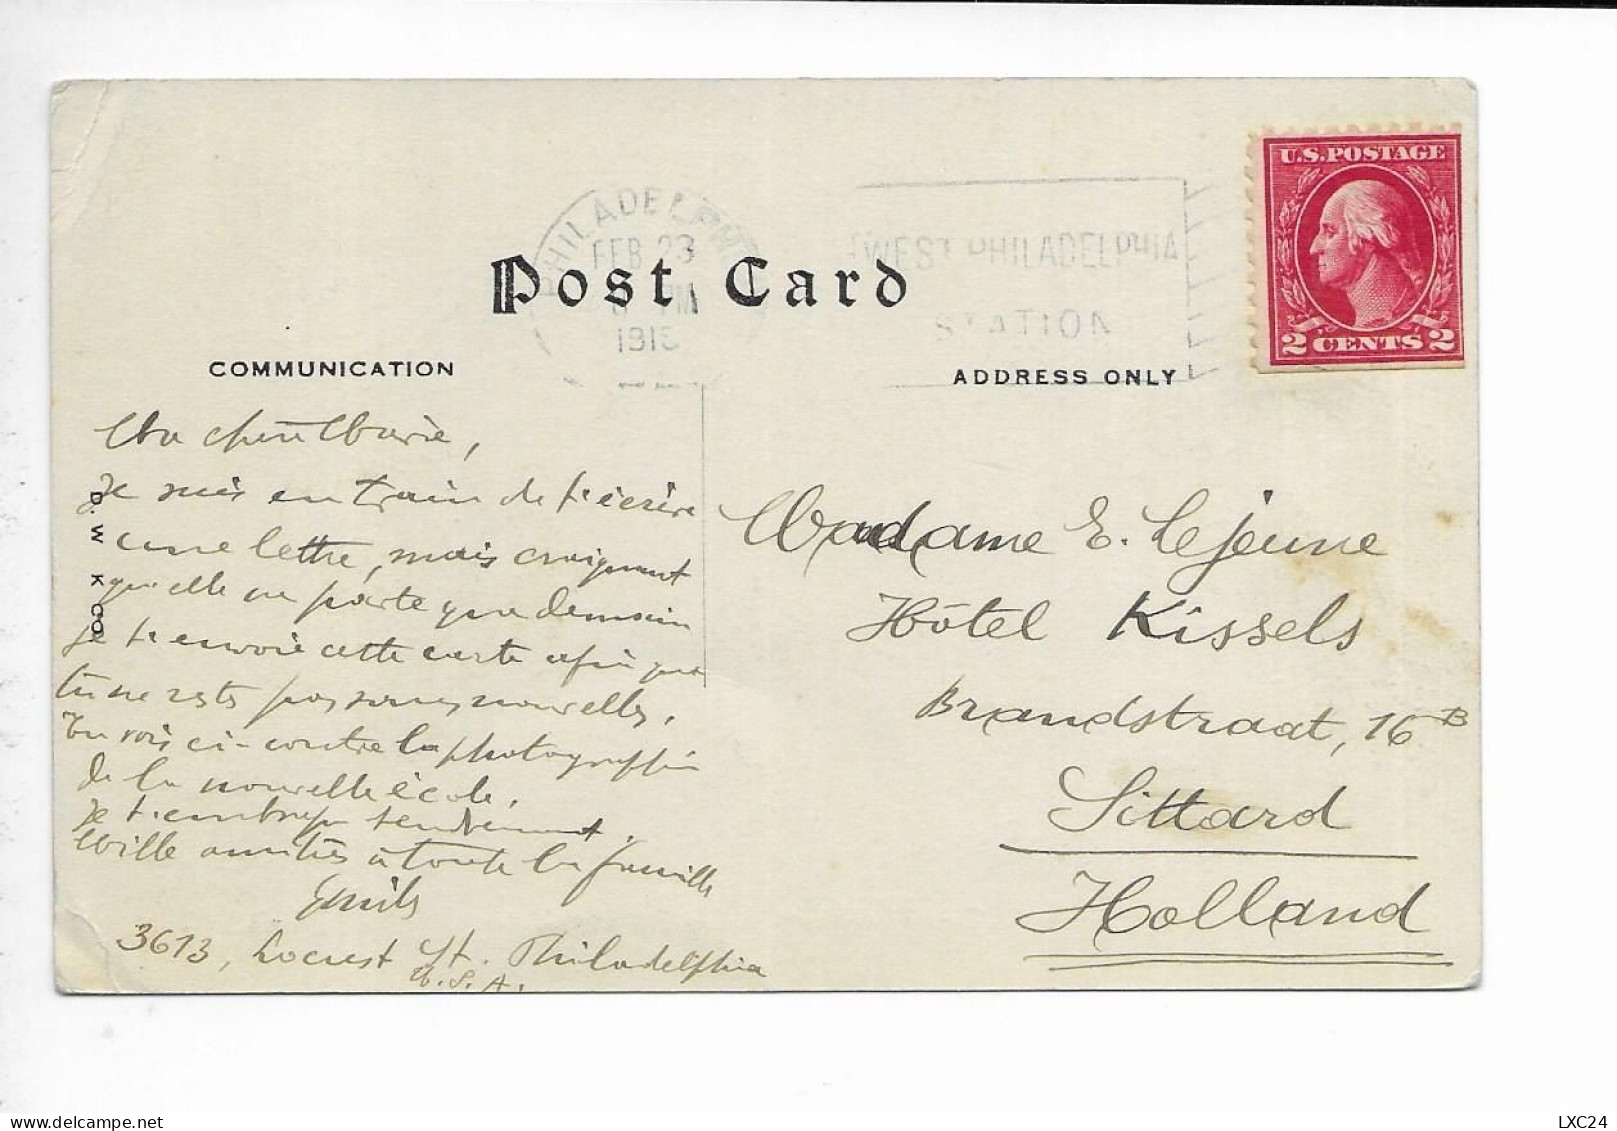 U.S.POSTAGE
2 CENTS 2
PHILADELPHI
FEB 23
PM
191
WEST PHILADELPHIA
STATION
Post Card
COMMUNICATION
ADDRESS ONLY
D. W K CO.
Ma chère Marie,
Je suis en train de t'écrire
une lettre, mais craignant
qu'elle ne parte que demain
je t'envoie cette carte afin que
tu ne restes pas sans nouvelles.
Tu vois ci-contre la photographie
de la nouvelle école.
Je t'embrasse tendrement.
Mille amitiés à toute la famille
Emile
3613, Locust St. Philadelphia
U.S.A.
Madame E. Lejeune
Hôtel Kissels
Brandstraat, 16 B
Sittard
Holland
LXC24